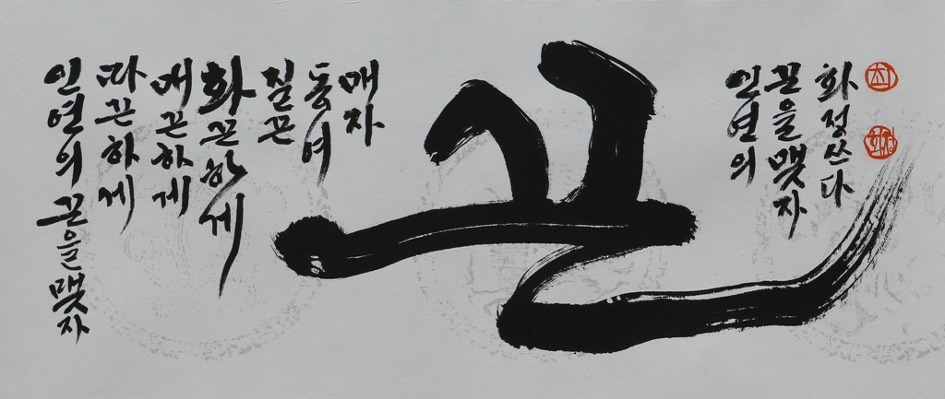 인연의 끈을 맺자
따끈하게
매끈하게
화끈하게
질끈
동여
매자
끈
인연의
끈을 맺자
화정쓰다